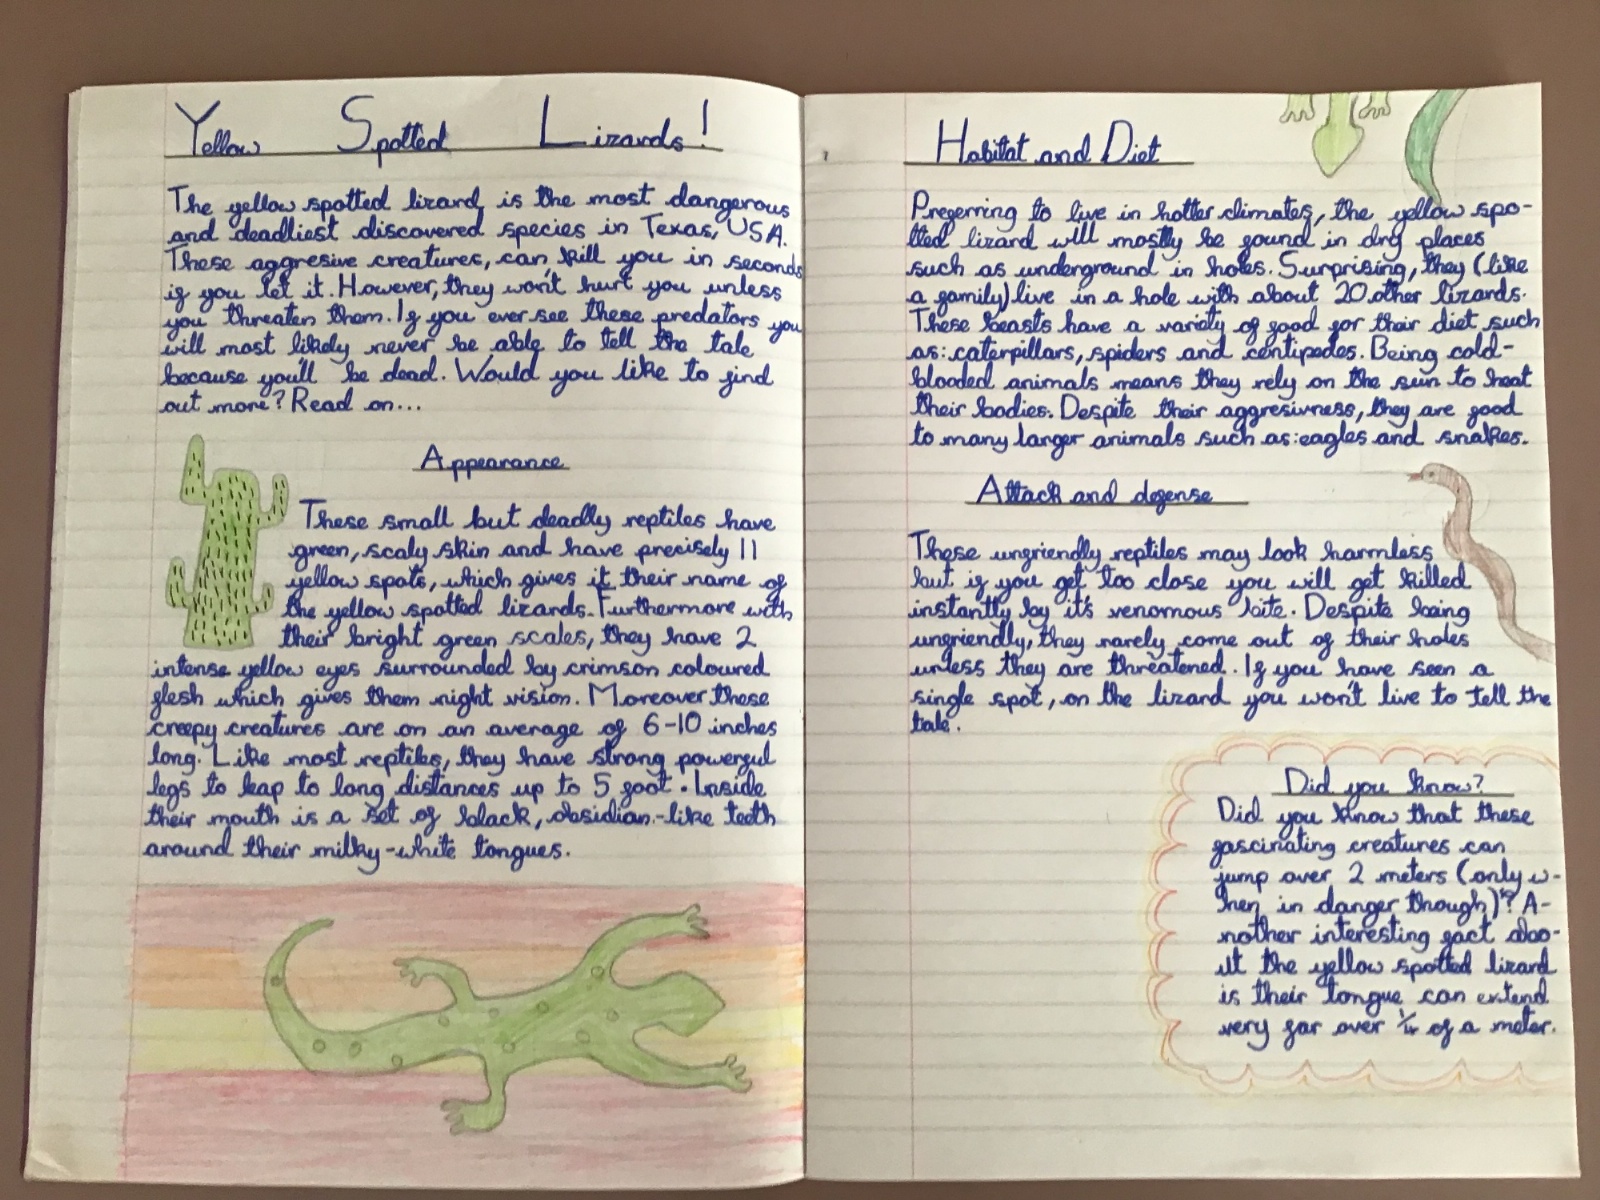 Yellow Spotted Lizards!
The yellow spotted lizard, is the most dangerous
and deadliest discovered species in Texas, USA.
These aggresive creatures, can kill you in seconds
if you let it. However, they won't hurt you unless
you threaten them. If you ever see these predators you
will most likely never be able to tell the tale
because you'll be dead. Would you like to find
out more? Read on...
Appearance
These small but deadly reptiles have
green, scaly skin and have precisely 11
yellow spots, which gives it their name of
the yellow spotted lizards. Furthermore with
their bright green scales, they have 2
intense yellow eyes surrounded by crimson coloured
flesh which gives them night vision. Moreover these
creepy creatures are on an average of 6-10 inches
long. Like most reptiles, they have strong powerful
legs to leap to long distances up to 5 foot. Inside
their mouth is a set of black, obsidian-like teeth
around their milky-white tongues.
Habitat and Diet
Preferring to live in hotter climates, the yellow spo-
tted lizard will mostly be found in dry places
such as underground in holes. Surprising, they (like
a family) live in a hole with about 20 other lizards.
These beasts have a variety of food for their diet such
as: caterpillars, spiders and centipedes. Being cold-
blooded animals means they rely on the sun to heat
their bodies. Despite their aggresivness, they are food
to many larger animals such as: eagles and snakes.
Attack and defense
These unfriendly reptiles may look harmless
but if you get too close you will get killed
instantly by it's venomous bite. Despite being
unfriendly, they rarely come out of their holes
unless they are threatened. If you have seen a
single spot, on the lizard you won't live to tell the
tale.
Did you know?
Did you know that these
fascinating creatures can
jump over 2 meters (only w-
hen in danger though)? A-
nother interesting fact abo-
ut the yellow spotted lizard
is their tongue can extend
very far over 1/4 of a meter.